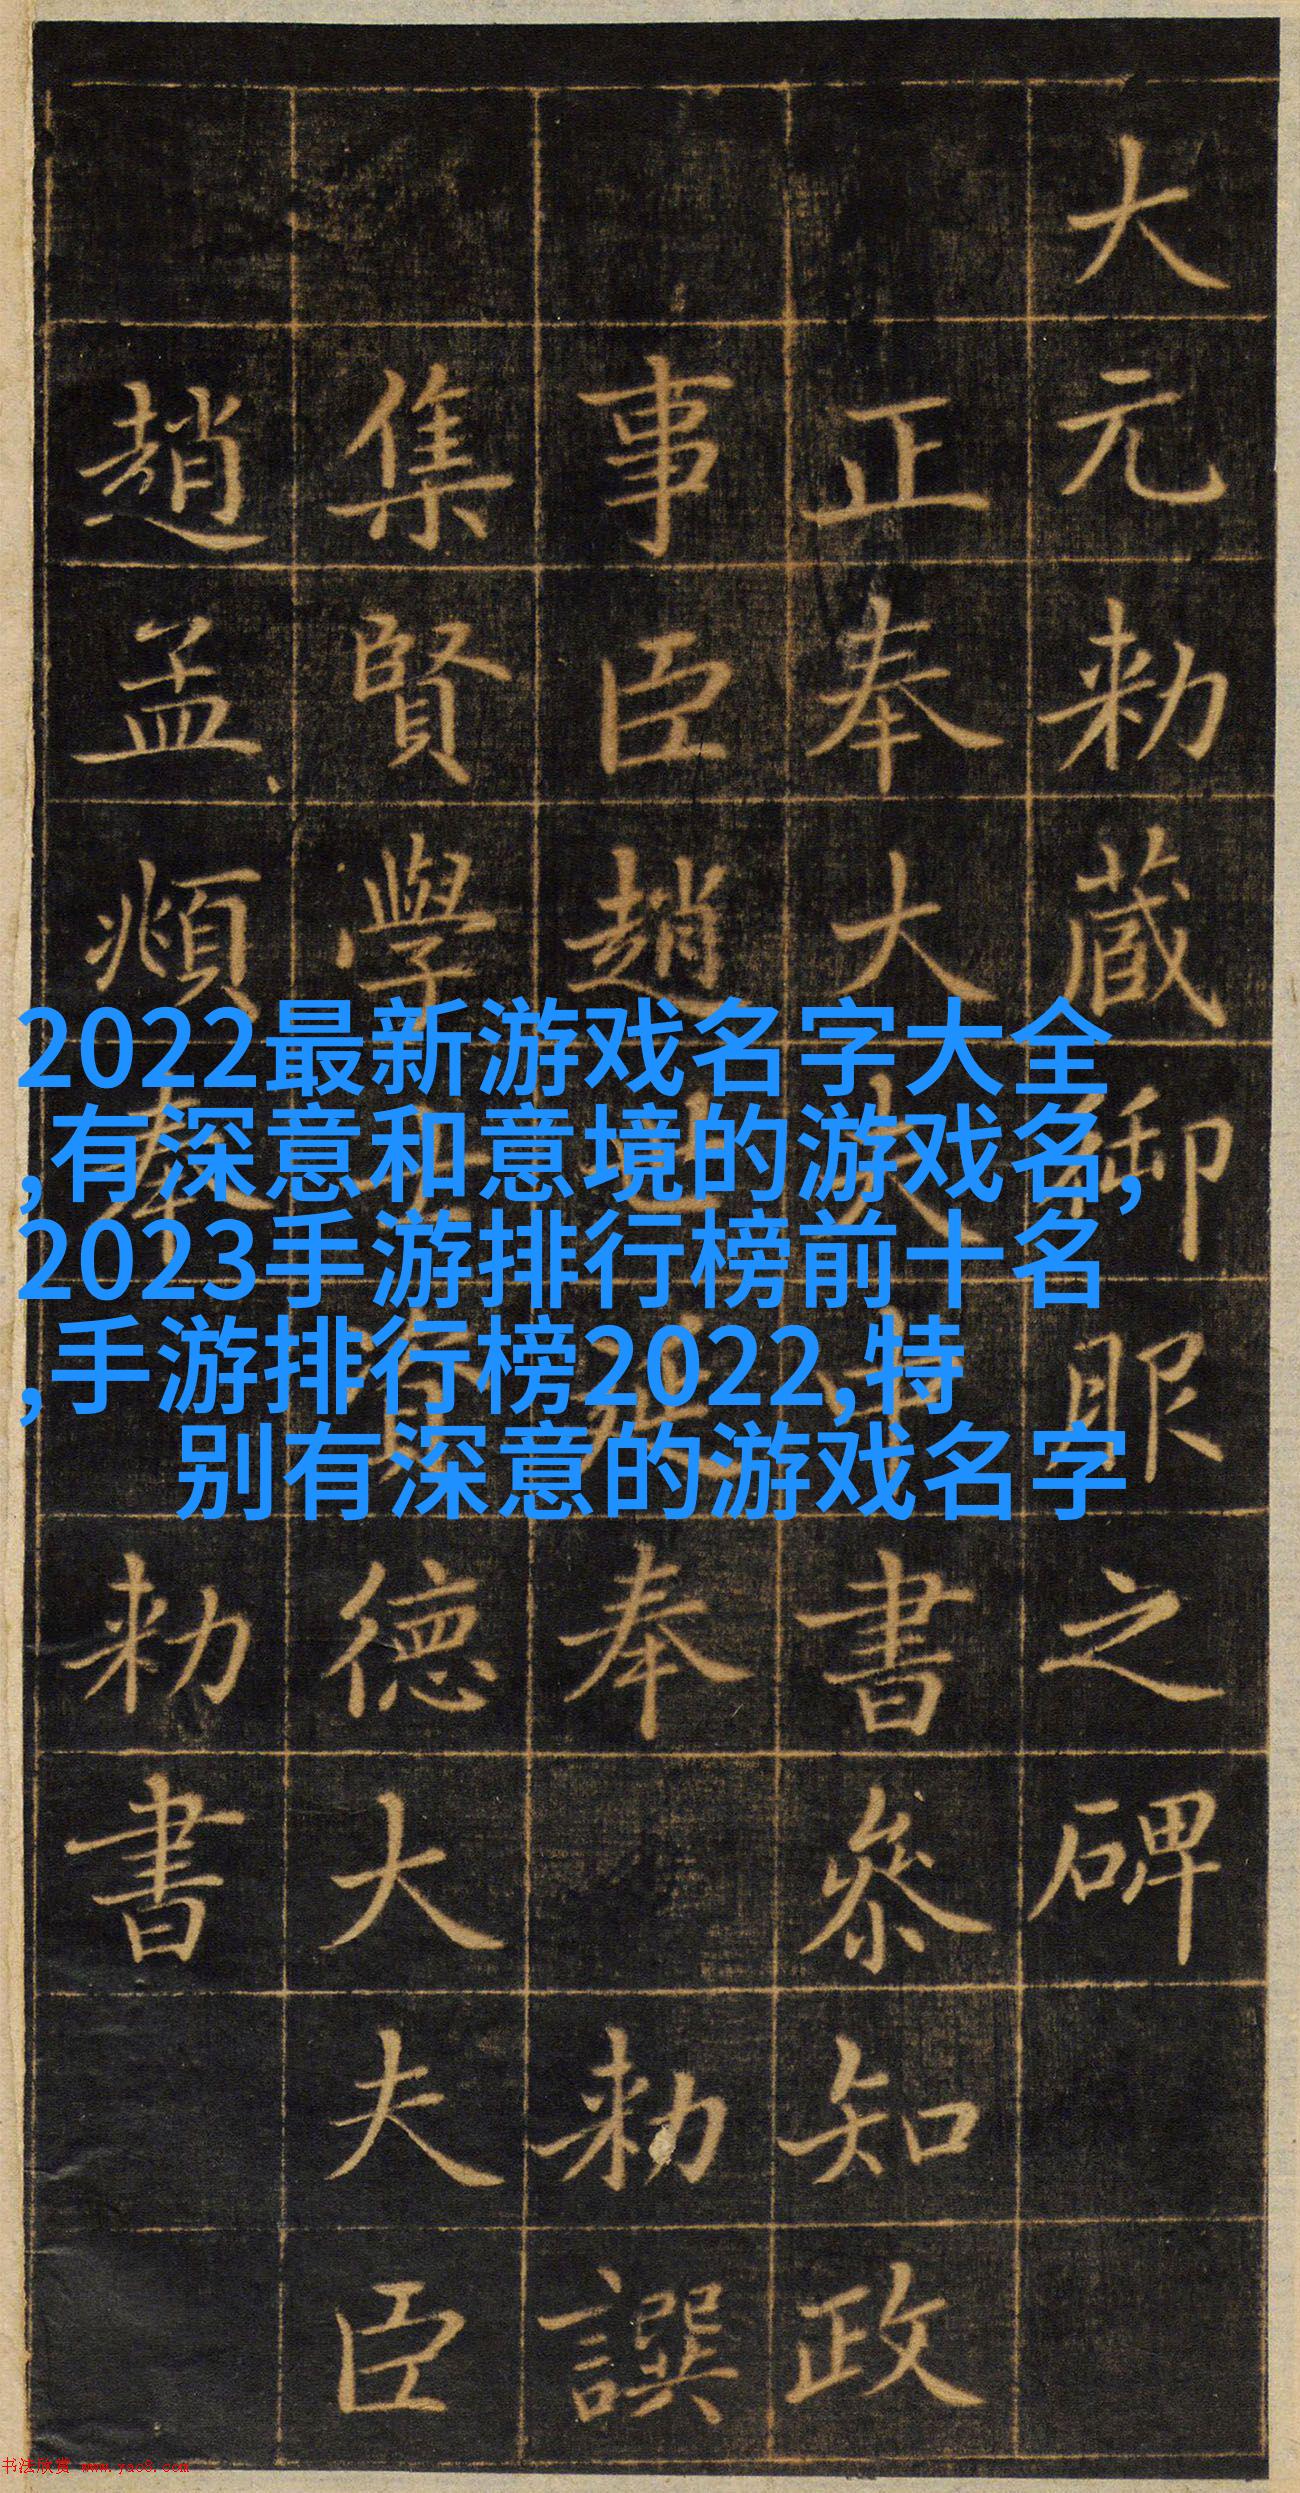 大元勑藏御服之碑
正奉大夫中書參知政
事臣趙世延奉勑譔
集賢學士資德大夫臣
趙孟頫奉勑書
2022最新游戏名字大全
,有深意和意境的游戏名,
2023手游排行榜前十名
,手游排行榜2022,特
别有深意的游戏名字
书法欣赏 www.yac8.com